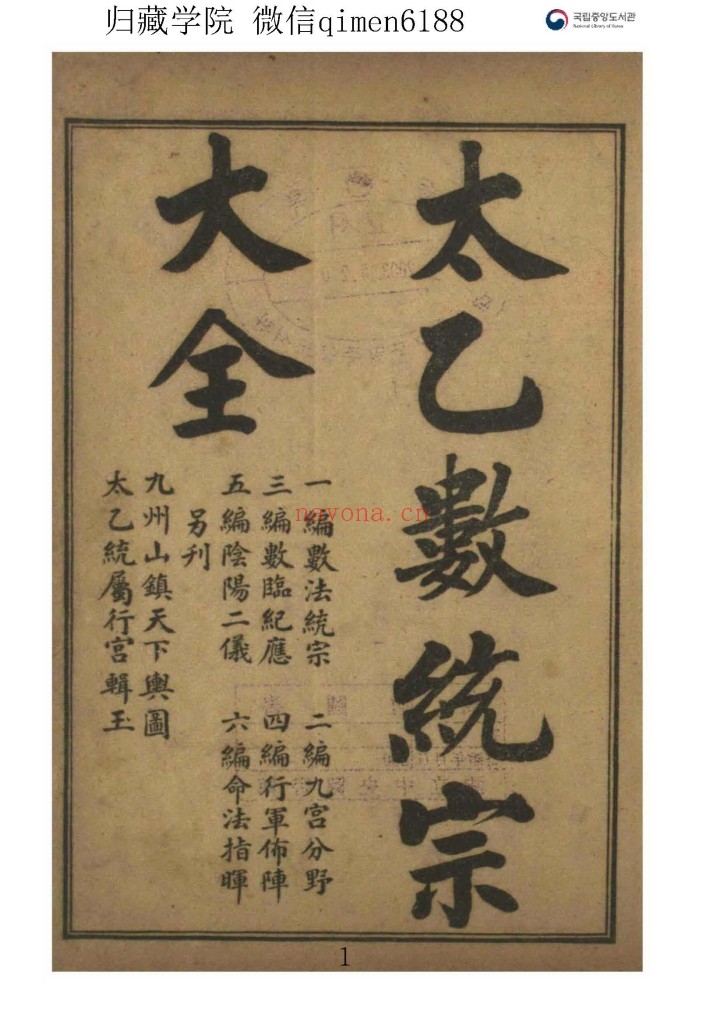 归藏学院 微信qimen6188
国立중앙도서관
National Library of Korea
太乙數統宗
大全
一編數法統宗 二編九宮分野
三編數臨紀應 四編行軍佈陣
五編陰陽二儀 六編命法指暉
另刋
九州山鎮天下輿圖
太乙統屬行宮輯玉
nayona.cn
1